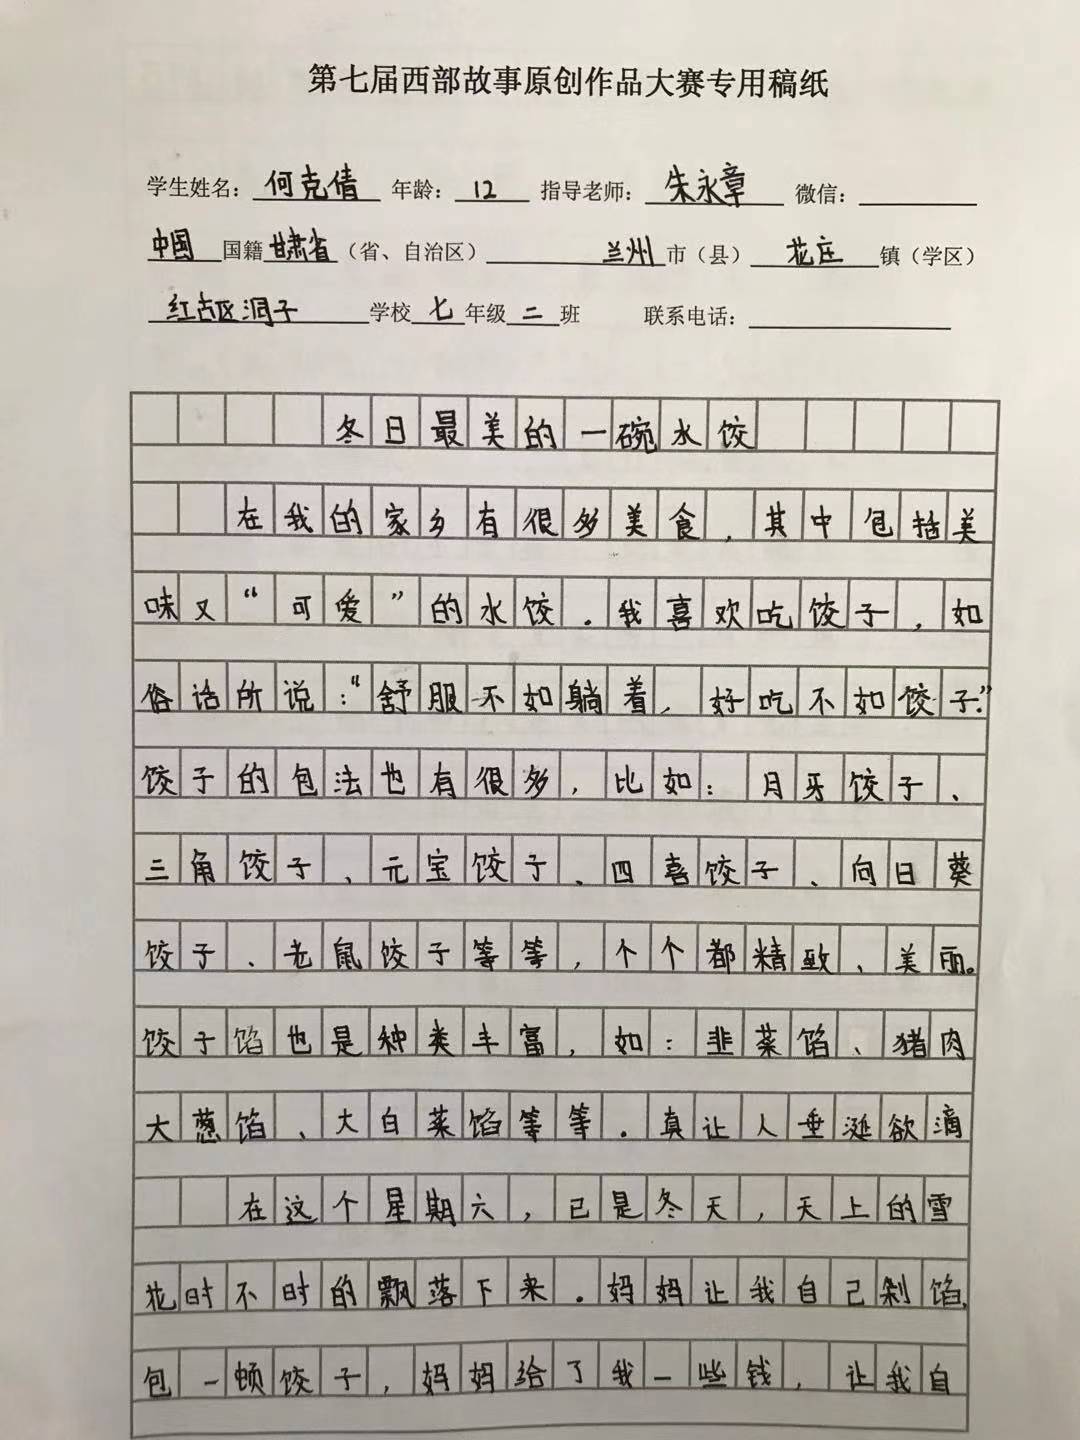 第七届西部故事原创作品大赛专用稿纸
学生姓名：何克倩 年龄：12 指导老师：朱永章 微信：
中国国籍甘肃省（省、自治区）兰州市（县）花庄镇（学区）
红古区洞子学校七年级二班 联系电话：
冬日最美的一碗水饺
在我的家乡有很多美食，其中包括美
味又“可爱”的水饺。我喜欢吃饺子，如
俗话所说：“舒服不如躺着，好吃不如饺子。”
饺子的包法也有很多，比如：月牙饺子、
三角饺子、元宝饺子、四喜饺子、向日葵
饺子、老鼠饺子等等，个个都精致、美丽。
饺子馅也是种类丰富，如：韭菜馅、猪肉
大葱馅、大白菜馅等等。真让人垂涎欲滴
在这个星期六，已是冬天，天上的雪
花时不时的飘落下来。妈妈让我自己剁馅，
包一顿饺子，妈妈给了我一些钱，让我自